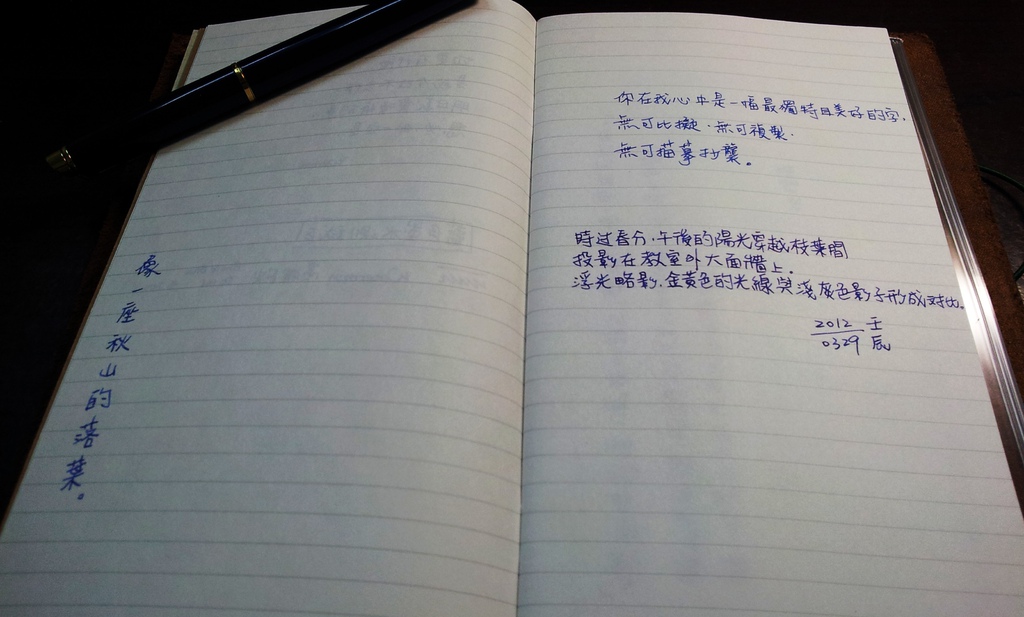 像一座秋山的落葉。
你在我心中是一幅最獨特且美好的字,
無可比擬.無可複製.
無可描摹抄襲。
時过春分.午後的陽光穿越枝葉間
投影在教室外大面牆上.
浮光略影.金黃色的光線與淺灰色影子形成対比.
2012 壬
0329 辰